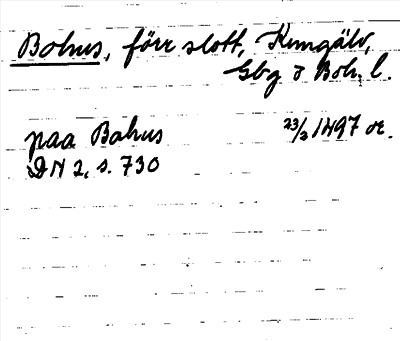 Bohus, förr slott, Kungälv,
Gbg o Boh. l.
paa Bahus 23/2 1497 or.
DN 2, s. 730